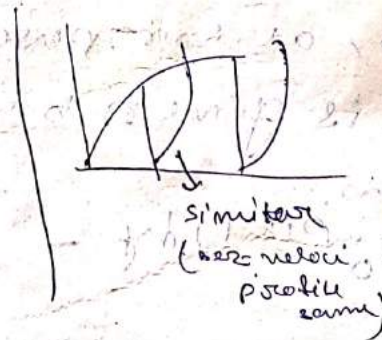 similar
(bcz veloci
profile
same)